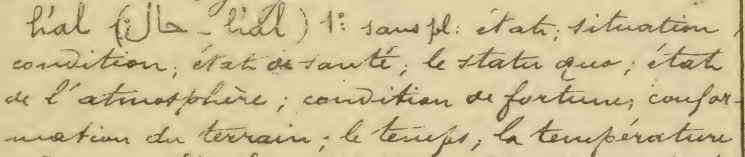 h'al (حال - h'al) 1º: sans pl: état; situation,
condition; état de santé; le statu quo; état
de l'atmosphère; condition de fortune; confor-
mation du terrain; le temps; la température